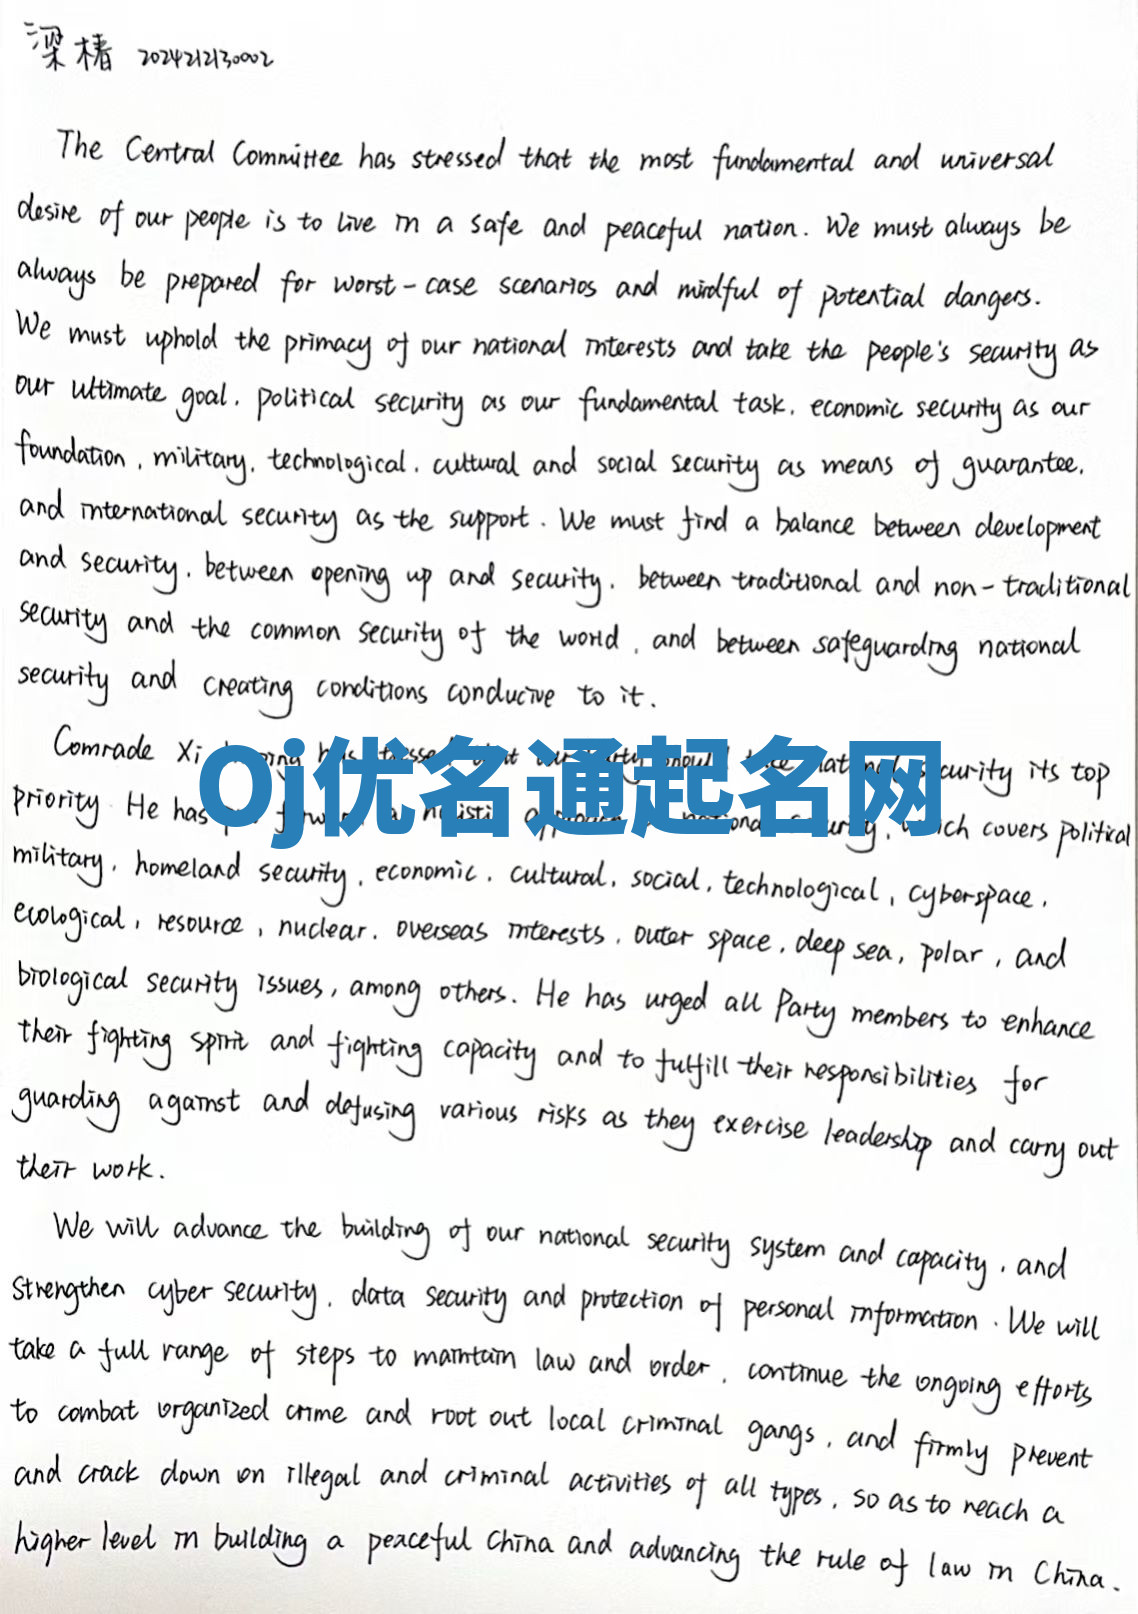 梁椿 2024212130002
The Central Committee has stressed that the most fundamental and universal
desire of our people is to live in a safe and peaceful nation. We must always be
always be prepared for worst-case scenarios and mindful of potential dangers.
We must uphold the primacy of our national interests and take the people's security as
our ultimate goal, political security as our fundamental task, economic security as our
foundation, military, technological, cultural and social security as means of guarantee,
and international security as the support. We must find a balance between development
and security, between opening up and security, between traditional and non-traditional
security and the common security of the world, and between safeguarding national
security and creating conditions conducive to it.
Comrade Xi has stressed that our Party should take national security its top
Oj优名通起名网
priority. He has put forward a holistic approach national security, which covers political
military, homeland security, economic, cultural, social, technological, cyberspace,
ecological, resource, nuclear, overseas interests, outer space, deep sea, polar, and
biological security issues, among others. He has urged all Party members to enhance
their fighting spirit and fighting capacity and to fulfill their responsibilities for
guarding against and defusing various risks as they exercise leadership and carry out
their work.
We will advance the building of our national security system and capacity, and
strengthen cyber security, data security and protection of personal information. We will
take a full range of steps to maintain law and order, continue the ongoing efforts
to combat organized crime and root out local criminal gangs, and firmly prevent
and crack down on illegal and criminal activities of all types, so as to reach a
higher level in building a peaceful China and advancing the rule of law in China.